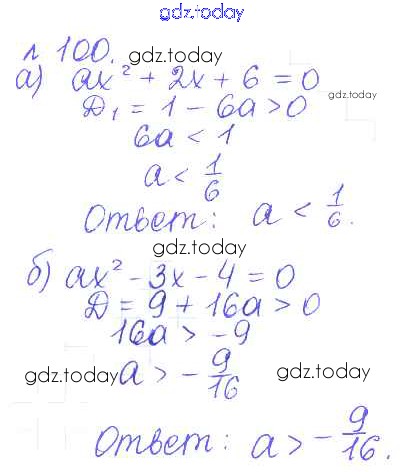 gdz.today
№ 100. gdz.today
а) ax² + 2x + 6 = 0
Д₁ = 1 - 6a > 0 gdz.today
6a < 1
a < 1/6
Ответ: a < 1/6.
gdz.today
б) ax² - 3x - 4 = 0
Д = 9 + 16a > 0
16a > -9
gdz.today a > -9/16 gdz.today
Ответ: a > -9/16.